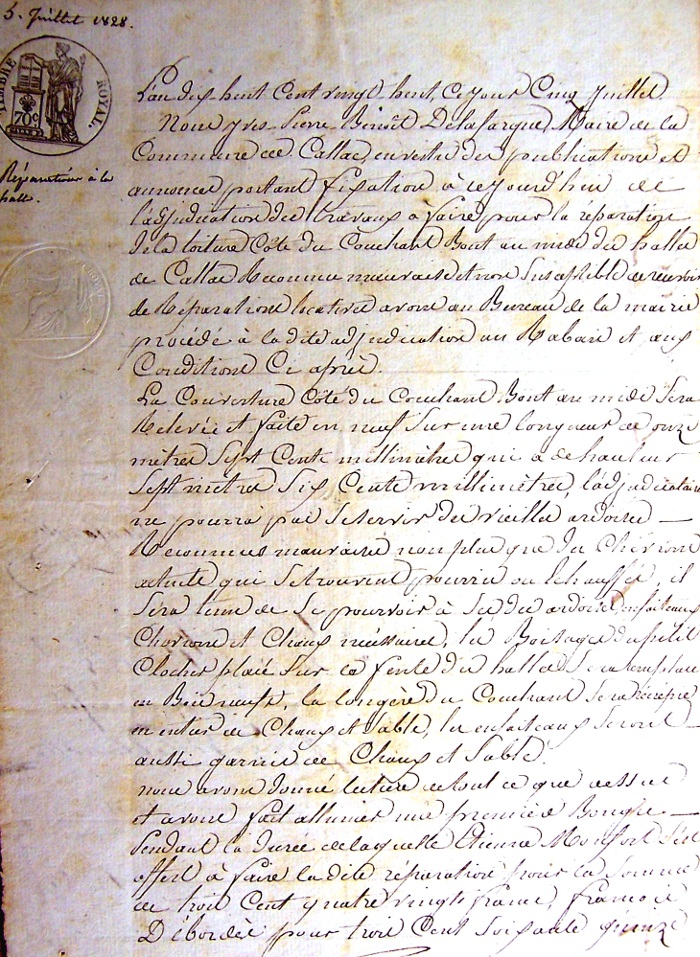 5. Juillet 1828.
TIMBRE ROYAL.
70c
Réparations à la
halle.
L'an dix huit Cent vingt huit, Ce jour Cinq Juillet
Nous yves Pierre Benoît Delafargue, Maire de la
Commune de Callac, en vertu des publications et
annonces portant fixation à ce jourd'hui de
l'adjudication des travaux à faire pour la réparation
de la toiture Côté du Couchant Bout au midi des halles
de Callac Reconnue mauvaise et non Susceptible de recevoir
de Réparations locatives avons au Bureau de la mairie
procédé à la dite adjudication au Rabais et aux
Conditions Ci après.
La Couverture Côté du Couchant Bout au midi Sera
Relevée et faite en neuf Sur une longueur de onze
mètres Sept Cents millimètres qui a de hauteur
Sept mètres Six Cents millimètres, l'adjudicataire
ne pourra pas Se servir des vieilles ardoises
Reconnues mauvaises non plus que du Chévrons
et latte qui Se trouvent pourris ou échauffés, il
Sera tenu de Se pourvoir à Ses des ardoises, enfaiteaux
Chevrons et Chaux nécessaires, les Boisages du petit
Clocher placé Sur la fente des halles Sera remplacé
en Bois neufs, la longère du Couchant Sera recrépie
en entier de Chaux et Sable, les enfaiteaux Seront
aussi garnis de Chaux et Sable.
nous avons donné lecture de tout ce que dessus
et avons fait allumer une première Bougie
Pendant la durée de laquelle Etienne Monfort S'est
offert à faire la dite réparation pour la Somme
de trois Cent quatre vingts francs, francois
Débordès pour trois Cent Soixante quinze